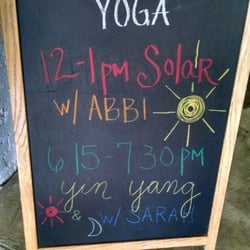 YOGA
12-1pm Solar
w/ ABBI
615-730pm
yin yang
& w/ SARAH